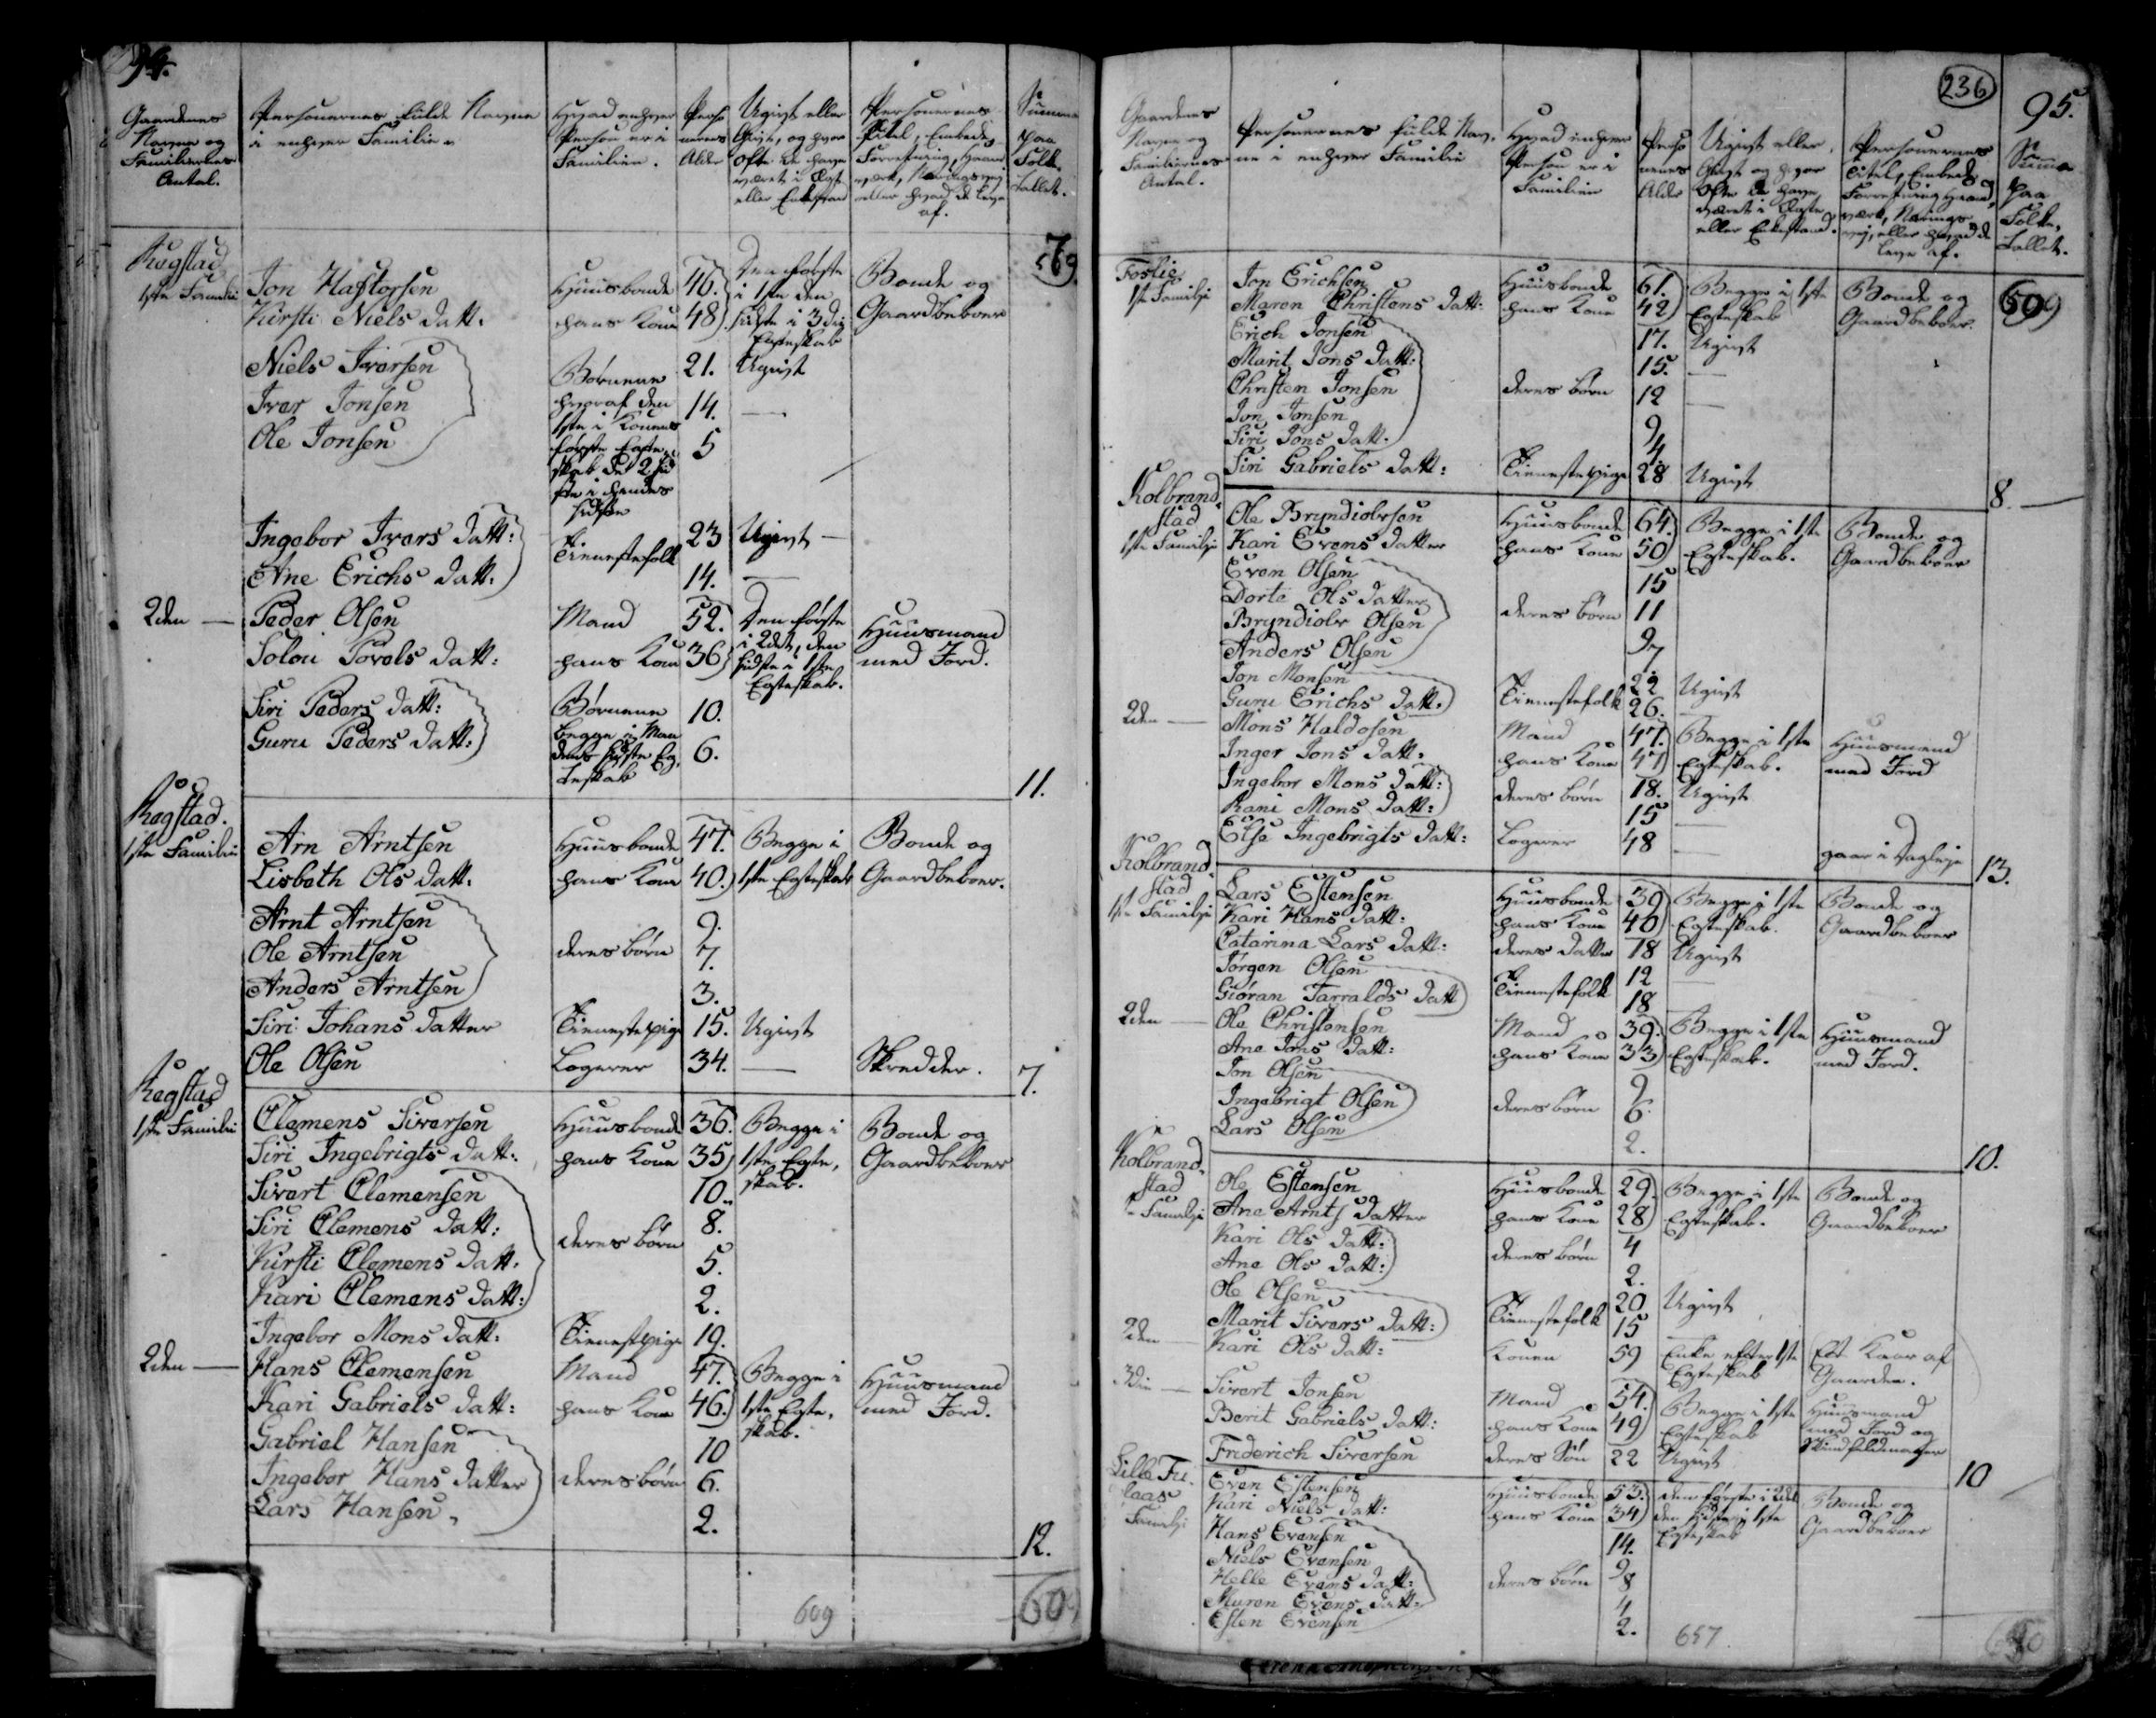 94.
Gaardenes Navne og Familiernes Antal. Personernes fulde Navne i enhver Familie. Hvad enhver Person er i Familien. Personernes Alder Ugivt eller Givt, og hvor ofte de have været i Ægte- eller Enkestand Personernes Titel, Embede, Forretning, Haandværk, Næringsvej eller hvad de leve af. Summa paa Folke Tallet.
569
Rogstad
1ste Famili Jon Haflorsen Huusbonde 46. Den første i 1ste den sidste i 3die Egteskab Bonde og Gaardbeboer
Kirsti Niels Datt. hans Kone 48
Niels Iversen Børnene hvoraf den 1ste i Konens første Egteskab de 2 sidste i hendes sidste 21. Ugivt
Iver Jonsen 14. —
Ole Jonsen 5
Ingebor Ivers Datt: Tienestefolk 23 Ugivt —
Ane Erichs Datt. 14. —
2den — Peder Olsen Mand 52. Den første i 2det, den sidste i 1ste Egteskab. Huusmand med Jord.
Solvi Povels Datt: hans Kone 36
Siri Peders Datt: Børnene begge i Mandens sidste Egteskab 10.
Guru Peders Datt: 6.
11.
Rogstad.
1ste Familie Arn Arntsen Huusbonde 47. Begge i 1ste Egteskab Bonde og Gaardbeboer.
Lisbeth Ols Datt. hans Kone 40.
Arnt Arntsen deres børn 9.
Ole Arntsen 7.
Anders Arntsen 3.
Siri Johans Datter Tienestepige 15. Ugivt
Ole Olsen Logerer 34. — Skredder.
7.
Rogstad
1ste Famili Clemens Siversen Huusbonde 36. Begge i 1ste Egteskab. Bonde og Gaardbeboer
Siri Ingebrigts Datt. hans Kone 35
Sivert Clemensen deres børn 10.
Siri Clemens Datt: 8.
Kirsti Clemens Datt. 5.
Kari Clemens Datt: 2.
Ingebor Mons Datt. Tienestpige 19.
2den — Hans Clemensen Mand 47. Begge i 1ste Egteskab. Huusmand med Jord.
Kari Gabriels Datt: hans Kone 46.
Gabriel Hansen deres børn 10
Ingebor Hans Datter 6.
Lars Hansen. 2.
12.
609 609
236
95.
Gaardenes Navne og Familiernes Antal. Personernes fulde Navne i enhver Familie Hvad enhver Person er i Familien Personenes Alder Ugivt eller Givt og hvor ofte de have været i Ægte- eller Enkestand. Personernes Titel, Embede, Forretning Haandværk, Nærings vej, eller hvad de leve af. Summa paa Folke, Tallet.
609
Foslie
1ste Familie Jon Erichsen Huusbonde 61. Begge i 1ste Egteskab Bonde og Gaardbeboer.
Maren Christens Datt: hans Kone 42
Erich Jonsen deres børn 17. Ugivt
Marit Jons Datt: 15. —
Christen Jonsen 12 —
Jon Jonsen 9
Siri Jons Datt. 4.
Siri Gabriels Datt: Tienestepige 28 Ugivt
8. —
Kolbrandstad
1ste Familie Ole Bryndiolvsen Huusbonde 64. Begge i 1ste Egteskab. Bonde og Gaardbeboer
Kari Evens Datter hans Kone 50
Even Olsen deres børn 15
Dorte Ols Datter 11
Bryndiolv Olsen 9
Anders Olsen 7.
Jon Monsen Tienestefolk 22 Ugivt
Guru Erichs Datt. 26. —
2den — Mons Haldosen Mand 47. Begge i 1ste Egteskab. Huusmand med Jord
Inger Jons Datt. hans Kone 47
Ingebor Mons Datt: deres børn 18. Ugivt
Kani Mons Datt: 15 —
Else Ingebrigts Datt: Logerer 48 — gaar i Dagleje
13.
Kolbrandstad
1ste Familie Lars Estensen Huusbonde 39 Begge i 1ste Egteskab. Bonde og Gaardbeboer
Kari Hans Datt: hans Kone 40
Catarina Lars Datt: deres Datter 18 Ugivt
Jørgen Olsen Tienestefolk 12 —
Giøran Tarralds Datt 18
2den — Ole Christensen Mand 39. Begge i 1ste Egteskab. Huusmand med Jord.
Ane Jons Datt: hans Kone 33
Jon Olsen deres børn 9
Ingebrigt Olsen 6.
Lars Olsen 2.
10.
Kolbrandstad
Familie Ole Estensen Huusbonde 29. Begge i 1ste Egteskab. Bonde og Gaardbeboer
Ane Arnts Datter hans Kone 28
Kari Ols Datt: deres børn 4
Ane Ols Datt: 2.
Ole Olsen Tienestefolk 20 Ugivt
Marit Sivers Datt: 15 —
2den — Kari Ols Datt: Konen 59 Enke efter 1ste Egteskab Før Kaar af Gaarden.
3die — Sivert Jonsen Mand 54. Begge i 1ste Egteskab Huusmand med Jord og
Berit Gabriels Datt: hans Kone 49
Friderich Siversen deres Søn 22 Ugivt
10
Lille
Familie Even Estensen Huusbonde 53. Den første i 2det den sidste i 1ste Egteskab Bonde og Gaardbeboer
Kari Niels Datt: hans Kone 34
Hans Evensen deres børn 14.
Niels Evensen 9
Helle Evens Datt. 8
Maren Evens Datt. 4
Esten Evensen 2.
657